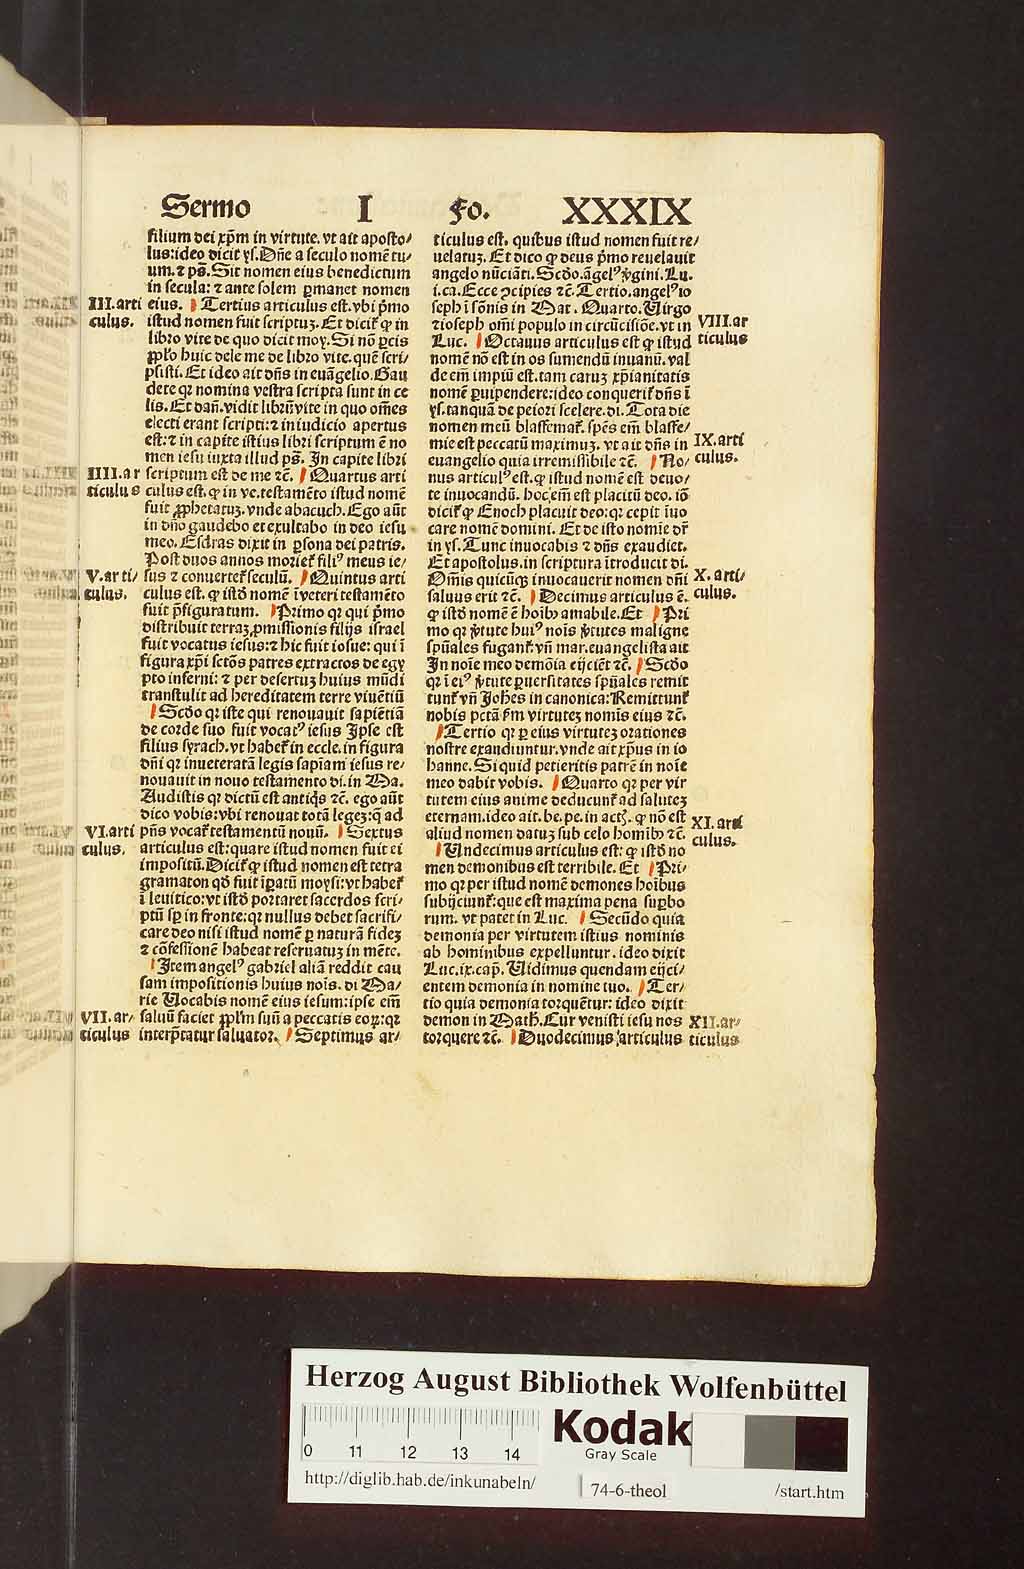 Sermo I Fo. XXXIX
filium dei xp̄m in virtute. vt ait aposto/
lus: ideo dicit ys. Dn̄e a seculo nomē tu/
um. ⁊ ps̄. Sit nomen eius benedictum
in secula: ⁊ ante solem ꝑmanet nomen
III. arti
culus.
eius. Tertius articulus est. vbi p̄mo
istud nomen fuit scriptuꝫ. Et dicit̉ ꝙ in
libro vite de quo dicit moy. Si nō ꝑcis
ꝓplo huic dele me de libro vite. quē scri/
psisti. Et ideo ait dn̄s in euāgelio. Gau
dete qꝛ nomina vestra scripta sunt in ce
lis. Et dan̄. vidit librū vite in quo om̄es
electi erant scripti: ⁊ in iudicio apertus
est: ⁊ in capite istius libri scriptum ē no
men iesu iuxta illud ps̄. In capite libri
IIII. ar
ticulus
scriptum est de me ⁊c̄. Quartus arti
culus est. ꝙ in ve. testamēto istud nomē
fuit ꝓphetatuꝫ. vnde abacuch. Ego aūt
in dn̄o gaudebo et exultabo in deo iesu
meo. Esdras dixit in ꝑsona dei patris.
Post duos annos moriet̉ filiꝰ meus ie/
V. arti/
culus.
sus ⁊ conuertet̉ seculū. Quintus arti
culus est. ꝙ istō nomē ī veteri testamēto
fuit p̄figuratum. Primo qꝛ qui p̄mo
distribuit terraꝫ ꝓmissionis filijs israel
fuit vocatus iesus: ⁊ hic fuit iosue: qui ī
figura xp̄i sctōs patres extractos de egy
pto inferni: ⁊ per desertuꝫ huius mūdi
transtulit ad hereditatem terre viuētiū
Scd̄o qꝛ iste qui renouauit sapiētiā
de corde suo fuit vocatꝰ iesus Ipse est
filius syrach. vt habet̉ in eccle. in figura
dn̄i qꝛ inueteratā legis sapīam iesus re/
nouauit in nouo testamento di. in Ma.
Audistis qꝛ dictū est antiq̇s ⁊c̄. ego aūt
dico vobis: vbi renouat totā legeꝫ: q̄ ad
VI. arti
culus.
pn̄s vocat̉ testamentū nouū. Sextus
articulus est: quare istud nomen fuit ei
impositū. Dicit̉ ꝙ istud nomen est tetra
gramaton qd̄ fuit īꝑatū moysi: vt habet̉
ī leuitico: vt istō portaret sacerdos scri/
ptū sꝑ in fronte: qꝛ nullus debet sacrifi/
care deo nisi istud nomē ꝑ naturā fideꝫ
⁊ cōfessionē habeat reseruatuꝫ in mēte.
Item angelꝰ gabriel aliā reddit cau
sam impositionis huius noīs. di Ma/
rie Uocabis nomē eius iesum: ipse em̄
VII. ar/
ticulus
saluū faciet ꝓplm̄ suū a peccatis eoꝝ: qꝛ
interp̄tatur saluator. Septimus ar/
ticulus est. quibus istud nomen fuit re/
uelatuꝫ. Et dico ꝙ deus p̄mo reuelauit
angelo nūciāti. Scd̄o. āgelꝰ v̄gini. Lu.
i. ca. Ecce ꝯcipies ⁊c̄. Tertio. angelꝰ io
seph ī sōnis in Mat. Quarto. Uirgo
⁊ ioseph om̄i populo in circūcisiōe. vt in
VIII. ar
ticulus
Luc. Octauus articulus est ꝙ istud
nomē nō est in os sumendū inuanū. val
de em̄ impiū est. tam caruꝫ xp̄ianitatis
nomē ꝑuipendere: ideo conquerit̉ dn̄s ī
ys. tanquā de peiori scelere. di. Tota die
nomen meū blasfemat̉. spēs em̄ blasfe/
IX. arti
culus.
mie est peccatū maximuꝫ. vt ait dn̄s in
euangelio quia irremissibile ⁊c̄. No/
nus articulꝰ est. ꝙ istud nomē est deuo/
te inuocandū. hoc em̄ est placitū deo. iō
dicit̉ ꝙ Enoch placuit deo: qꝛ cepit īuo
care nomē domini. Et de isto nomīe dr̄
in ys. Tunc inuocabis ⁊ dn̄s exaudiet.
Et apostolus. in scriptura ītroducit di.
X. arti/
culus.
Om̄is quicūqꝫ inuocauerit nomen dn̄i
saluus erit ⁊c̄. Decimus articulus ē.
ꝙ istō nomē ē hoībꝰ amabile. Et Pri
mo qꝛ v̄tute huiꝰ noīs v̄tutes maligne
spūales fugant̉. vn̄ mar. euangelista ait
In noīe meo demōia eijciēt ⁊c̄. Scd̄o
qꝛ ī eiꝰ v̄tute ꝑuersitates spūales remit
tunt̉ vn̄ Joh̄es in canonica: Remittunt̉
nobis pctā f̄m virtuteꝫ nomīs eius ⁊c̄.
Tertio qꝛ ꝑ eius virtuteꝫ orationes
nostre exaudiuntur. vnde ait xp̄us in io
hanne. Si quid petieritis patrē in noīe
meo dabit vobis. Quarto qꝛ per vir
tutem eius anime deducunt̉ ad saluteꝫ
eternam. ideo ait. be. pe. in actꝫ. ꝙ nō est
XI. arti
culus.
aliud nomen datuꝫ sub celo homībꝰ ⁊c̄.
Undecimus articulus est: ꝙ istō no
men demonibus est terribile. Et Pri/
mo qꝛ per istud nomē demones hoībus
subijciunt̉: que est maxima pena suꝑbo
rum. vt patet in Luc. Secūdo quia
demonia per virtutem istius nominis
ab hominibus expelluntur. ideo dixit
Luc. ix. cap̄. Uidimus quendam eijci/
entem demonia in nomine tuo. Ter/
tio quia demonia torquētur: ideo dixit
XII. ar/
ticulus
demon in Math̄. Cur venisti iesu nos
torquere ⁊c̄. Duodecimus articulus
Herzog August Bibliothek Wolfenbüttel
0 11 12 13 14
Kodak
Gray Scale
http://diglib.hab.de/inkunabeln/ 74-6-theol /start.htm